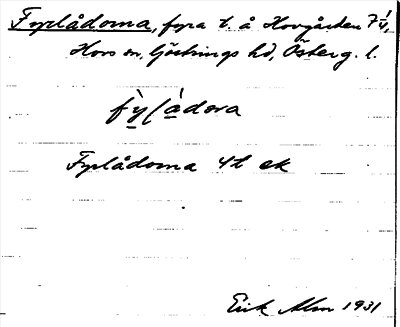 Fyrlådorna, fyra t. å Hovgården 7 1/4,
Hovs sn, Göstrings hd, Österg. l.
fỳ(àdora
Fyrlådorna 4 t ek
Erik Alm 1931